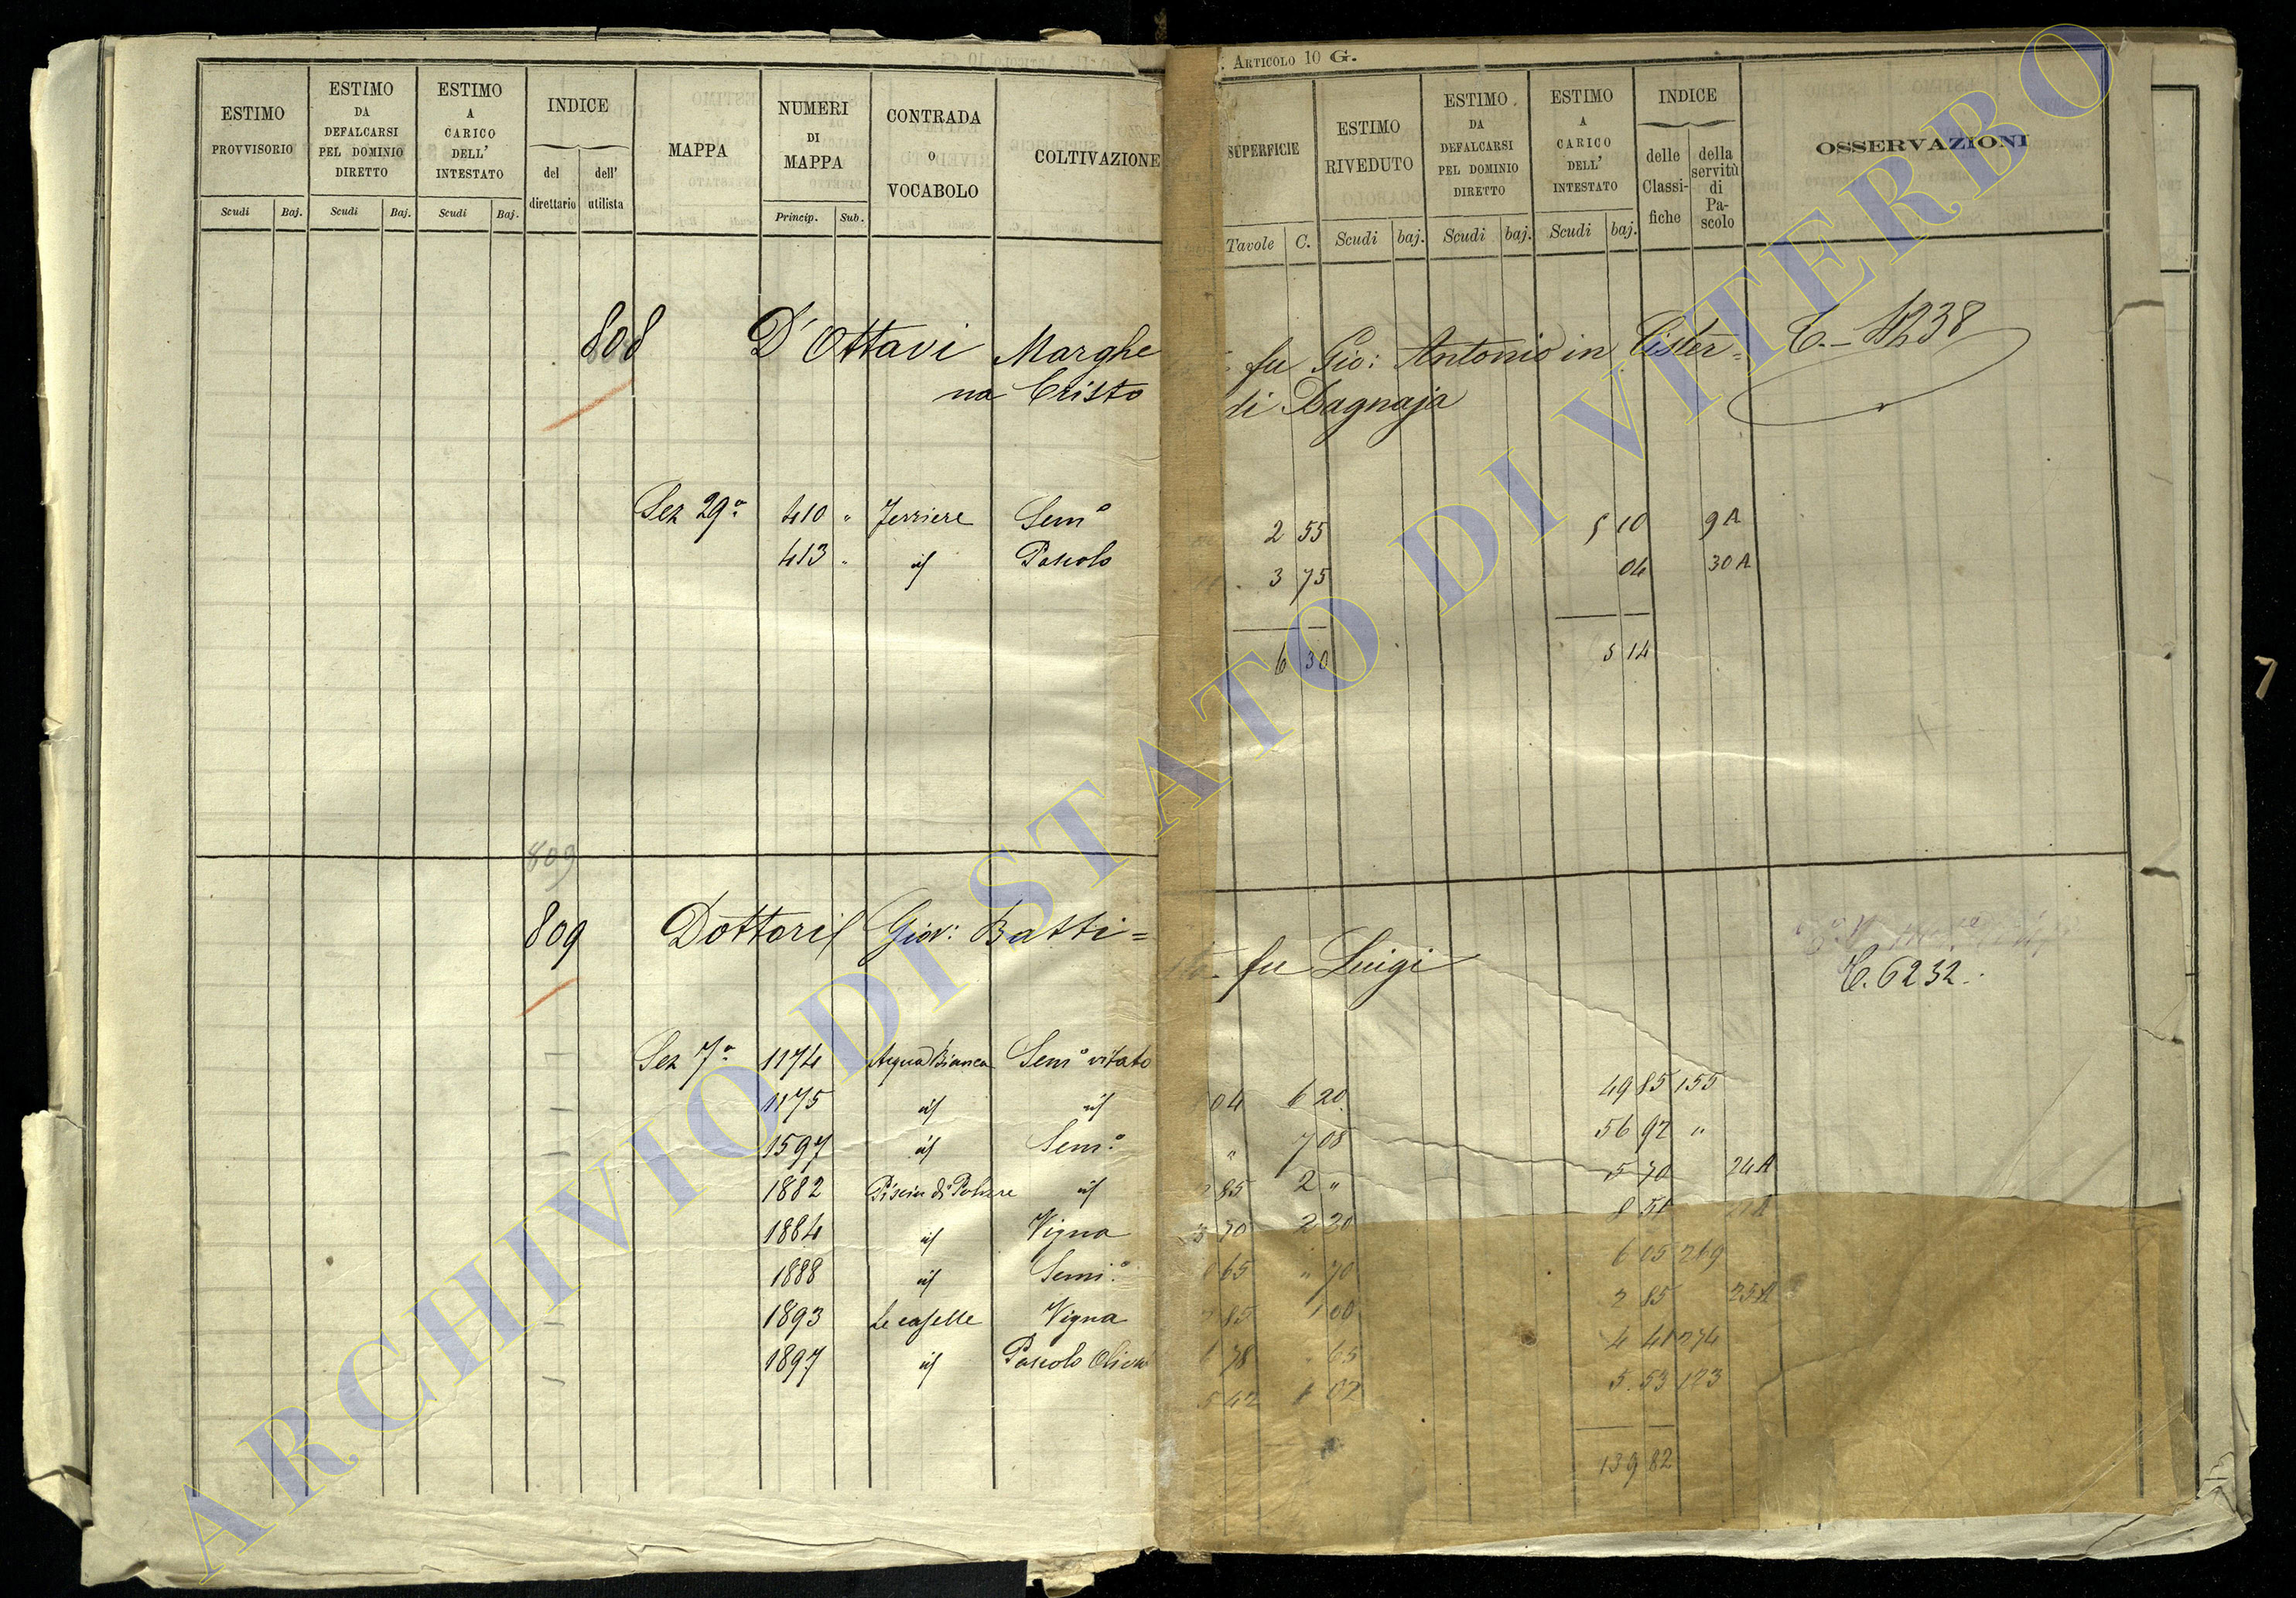 . ARTICOLO 10 G.
ESTIMO PROVVISORIO
Scudi Baj.
ESTIMO DA DEFALCARSI PEL DOMINIO DIRETTO
Scudi Baj.
ESTIMO A CARICO DELL' INTESTATO
Scudi Baj.
INDICE
del direttario
dell' utilista
MAPPA
NUMERI DI MAPPA
Princip. Sub.
CONTRADA O VOCABOLO
COLTIVAZIONE
SUPERFICIE
Tavole C.
ESTIMO RIVEDUTO
Scudi baj.
ESTIMO DA DEFALCARSI PEL DOMINIO DIRETTO
Scudi baj.
ESTIMO A CARICO DELL' INTESTATO
Scudi baj.
INDICE
delle Classi-fiche
della servitù di Pa-scolo
OSSERVAZIONI
808 D'Ottavi Marghe fu Gio: Antonio in Cister= C.- 4238
na Cristo di Bagnaja
Sez 29a 410 " Ferriere Semo 2 55 5 10 9A
413 " id Pascolo 3 75 04 30A
6 30 5 14
809
809 Dottori Giov: Batti= fu Luigi
C. 6232.
Sez 7a 1174 Acqua Bianca Semo vitato 04 6 20 49 85 155
1175 id id " 7 08 56 92 "
1597 id Semo 85 2 " 5 70 24A
1882 id 70 2 20 8 51
1884 id Vigna 65 " 70 6 05 269
1888 id Semi.o 85 1 00 2 85 25A
1893 Le caselle Vigna 78 " 65 4 41 274
1897 id Pascolo 42 1 02 5.53 123
139 82
ARCHIVIO DI STATO DI VITERBO